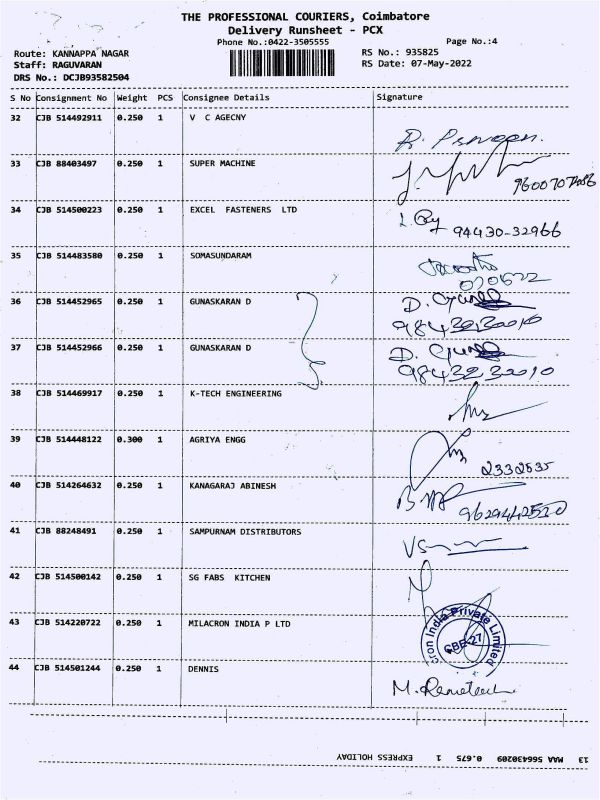 THE PROFESSIONAL COURIERS, Coimbatore
Delivery Runsheet - PCX
Phone No.:0422-3505555
Page No.:4
Route: KANNAPPA NAGAR
RS No.: 935825
Staff: RAGUVARAN
RS Date: 07-May-2022
DRS No.: DCJB93582504
S No Consignment No Weight PCS Consignee Details Signature
32 CJB 514492911 0.250 1 V C AGECNY
33 CJB 88403497 0.250 1 SUPER MACHINE
34 CJB 514500223 0.250 1 EXCEL FASTENERS LTD
94430-32966
35 CJB 514483580 0.250 1 SOMASUNDARAM
36 CJB 514452965 0.250 1 GUNASKARAN D
37 CJB 514452966 0.250 1 GUNASKARAN D
9843230010
38 CJB 514469917 0.250 1 K-TECH ENGINEERING
39 CJB 514448122 0.300 1 AGRIYA ENGG
40 CJB 514264632 0.250 1 KANAGARAJ ABINESH
41 CJB 88248491 0.250 1 SAMPURNAM DISTRIBUTORS
42 CJB 514500142 0.250 1 SG FABS KITCHEN
43 CJB 514220722 0.250 1 MILACRON INDIA P LTD
cron India Private Limited
CBE-27
44 CJB 514501244 0.250 1 DENNIS
13 MAA 566430209 0.675 1 EXPRESS HOLIDAY